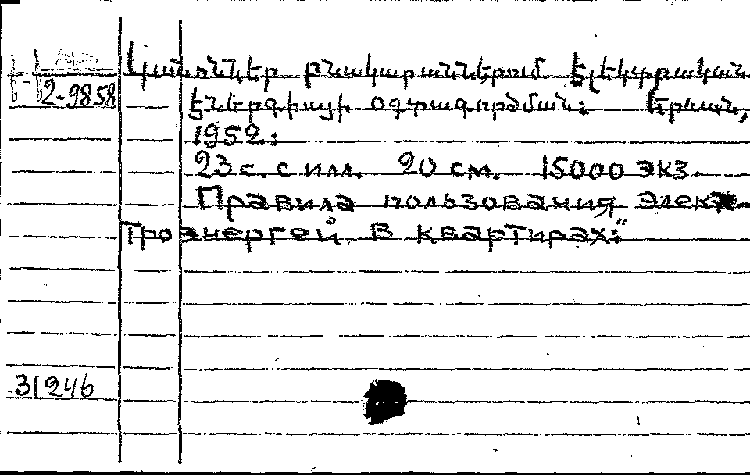 Կանոններ բնակարաններում էլեկտրական
2-9858 էներգիայի օգտագործման: Երևան,
1952:
23 с. с илл. 20 см. 15000 экз.
Правила пользования элект-
троэнергей в квартирах:"
31246